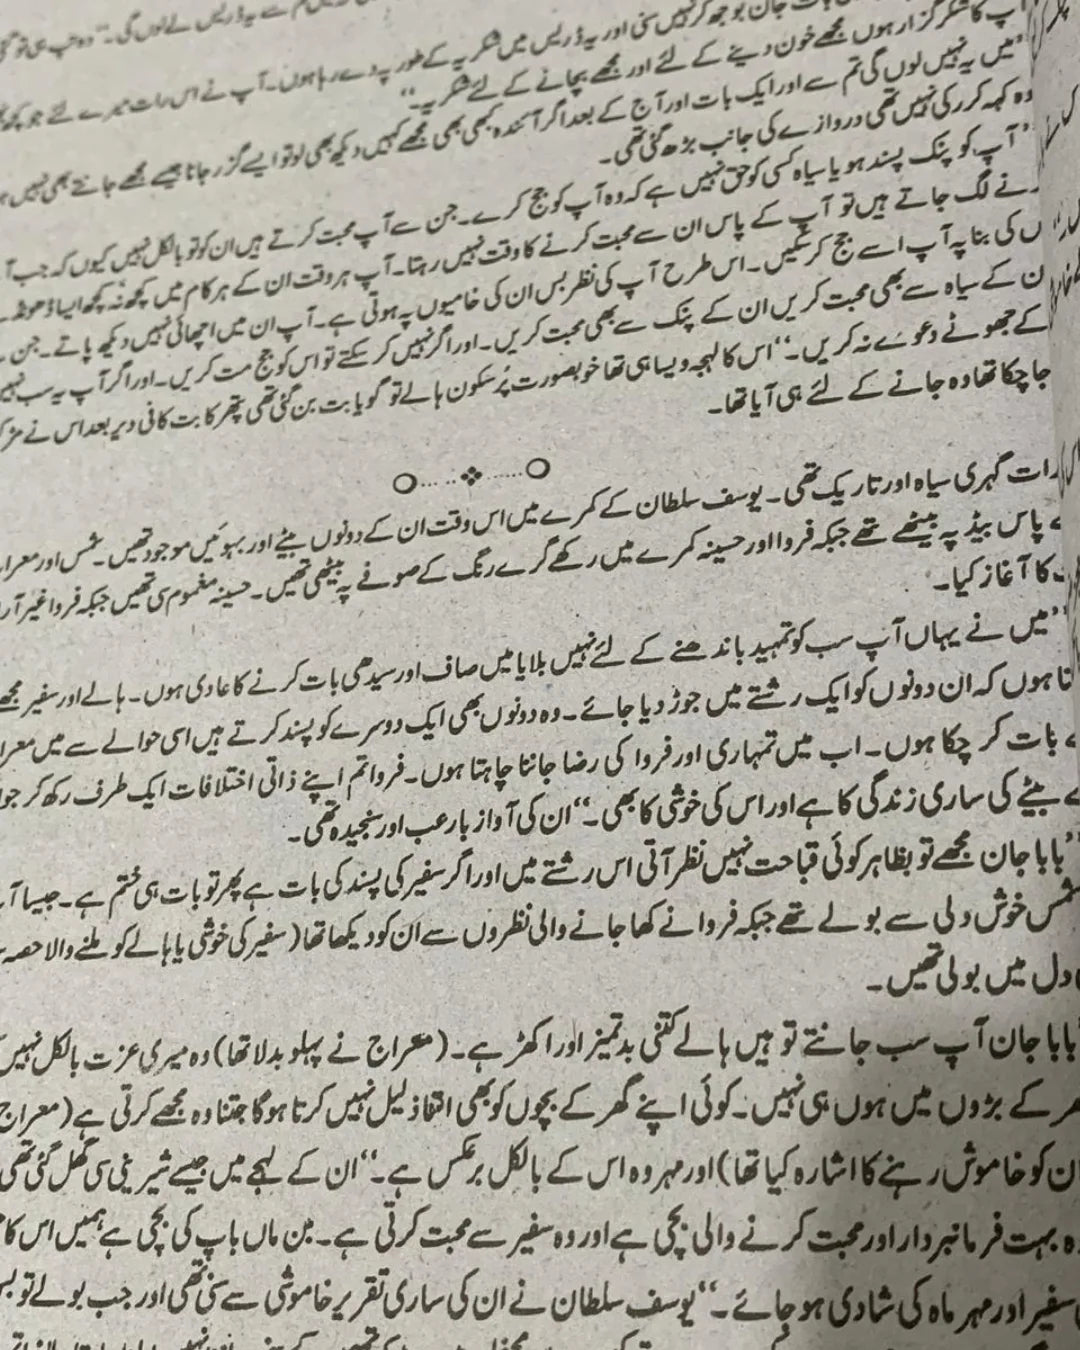 سے یہ ڈریس لے لوں گی۔
جان بوجھ کر نہیں سنی اور یہ ڈریس میں شکریہ کے طور پہ دے رہا ہوں۔ آپ نے اس رات میرے لئے جو کچھ
آپ کا شکر گزار ہوں مجھے خون دینے کے لئے اور مجھے بچانے کے لئے شکریہ۔“
”میں یہ نہیں لوں گی تم سے اور ایک بات اور آج کے بعد اگر آئندہ کبھی بھی مجھے کہیں دیکھ بھی لو تو ایسے گزر جانا جیسے مجھے جانتے بھی نہیں
وہ کہہ کر رکی نہیں تھی دروازے کی جانب بڑھ گئی تھی۔
”آپ کو پنک پسند ہو یا سیاہ کسی کو حق نہیں ہے کہ وہ آپ کو جج کرے۔ جن سے آپ محبت کرتے ہیں ان کو تو بالکل نہیں کیوں کہ جب آ
نے لگ جاتے ہیں تو آپ کے پاس ان سے محبت کرنے کا وقت نہیں رہتا۔ آپ ہر وقت ان کے ہر کام میں کچھ نہ کچھ ایسا ڈھونڈ
ں کی بنا پہ آپ اسے جج کر سکیں۔ اس طرح آپ کی نظر بس ان کی خامیوں پہ ہوتی ہے۔ آپ ان میں اچھائی نہیں دیکھ پاتے۔ جن
ن کے سیاہ سے بھی محبت کریں ان کے پنک سے بھی محبت کریں۔ اور اگر نہیں کر سکتے تو اس کو جج مت کریں۔ اور اگر آپ یہ سب نہیں
کے جھوٹے دعوے نہ کریں۔“ اس کا لہجہ ویسا ہی تھا خوبصورت پُرسکون ہالے تو گویا بت بن گئی تھی پتھر کا بت کافی دیر بعد اس نے مڑ
جا چکا تھا وہ جانے کے لئے ہی آیا تھا۔
رات گہری سیاہ اور تاریک تھی۔ یوسف سلطان کے کمرے میں اس وقت ان کے دونوں بیٹے اور بہوئیں موجود تھیں۔ شمس اور معرا
ے پاس بیڈ پہ بیٹھے تھے جبکہ فروا اور حسینہ کمرے میں رکھے گرے رنگ کے صوفے پہ بیٹھی تھیں۔ حسینہ مغموم سی تھیں جبکہ فروا غیر آرا
کا آغاز کیا۔
”میں نے یہاں آپ سب کو تمہید باندھنے کے لئے نہیں بلایا میں صاف اور سیدھی بات کرنے کا عادی ہوں۔ ہالے اور سفیر مجھے
تا ہوں کہ ان دونوں کو ایک رشتے میں جوڑ دیا جائے۔ وہ دونوں بھی ایک دوسرے کو پسند کرتے ہیں اسی حوالے سے میں معرا
ے بات کر چکا ہوں۔ اب میں تمہاری اور فروا کی رضا جاننا چاہتا ہوں۔ فروا تم اپنے ذاتی اختلافات ایک طرف رکھ کر جوا
ے بیٹے کی ساری زندگی کا ہے اور اس کی خوشی کا بھی۔“ ان کی آواز بارعب اور سنجیدہ تھی۔
”بابا جان مجھے تو بظاہر کوئی قباحت نہیں نظر آتی اس رشتے میں اور اگر سفیر کی پسند کی بات ہے پھر تو بات ہی ختم ہے۔ جیسا آ
شمس خوش دلی سے بولے تھے جبکہ فروا نے کھا جانے والی نظروں سے ان کو دیکھا تھا (سفیر کی خوشی یا ہالے کو ملنے والا حصہ
دل میں بولی تھیں۔
بابا جان آپ سب جانتے تو ہیں ہالے کتنی بدتمیز اور اکھڑ ہے۔ (معراج نے پہلو بدلا تھا) وہ میری عزت بالکل نہیں
ھر کے بڑوں میں ہوں ہی نہیں۔ کوئی اپنے گھر کے بچوں کو بھی اتنا ذلیل نہیں کرتا ہو گا جتنا وہ مجھے کرتی ہے (معراج
ان کو خاموش رہنے کا اشارہ کیا تھا) اور مہر وہ اس کے بالکل برعکس ہے۔“ ان کے لہجے میں جیسے شیرینی سی گھل گئی تھی
ہ بہت فرمانبردار اور محبت کرنے والی بچی ہے اور وہ سفیر سے محبت کرتی ہے۔ بن ماں باپ کی بچی ہے ہمیں اس کا
سفیر اور مہر ماہ کی شادی ہو جائے۔“ یوسف سلطان نے ان کی ساری تقریر خاموشی سے سنی تھی اور جب بولے تو بس